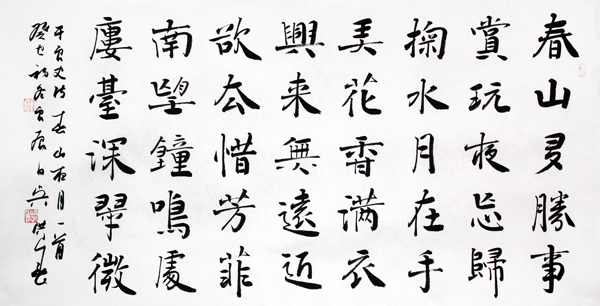 春山多勝事
賞玩夜忘歸
掬水月在手
弄花香满衣
興来無遠近
欲去惜芳菲
南望鐘鳴處
廔臺深翠微
于良史诗春山夜月一首
癸巳